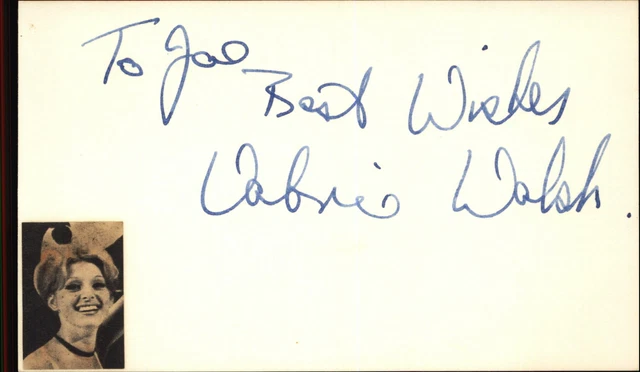 To Joe
Best Wishes
Valerie Walsh.